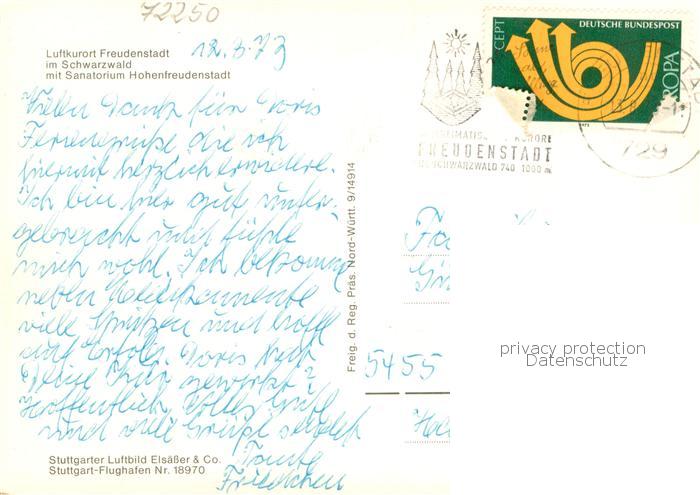 72250
Luftkurort Freudenstadt
im Schwarzwald
mit Sanatorium Hohenfreudenstadt
12.8.73
Vielen Dank für Doris
Feriengrüße die ich
hiermit herzlich erwidere.
Ich bin hier gut unter-
gebracht und fühle
mich wohl. Ich bekomme
neben Medikamente
viele Spritzen und hoffe
auf Erfolg. Doris hat
Deine Kur gewirkt?
Hoffentlich. Alles Gute
und viele Grüße sendet
Tante
Friedchen
Stuttgarter Luftbild Elsäßer & Co.
Stuttgart-Flughafen Nr. 18970
Freig. d. Reg. Präs. Nord-Württ. 9/14914
CEPT
DEUTSCHE BUNDESPOST
EUROPA
FREUDENSTADT
SCHWARZWALD 740 1000 m
729
5455
privacy protection
Datenschutz